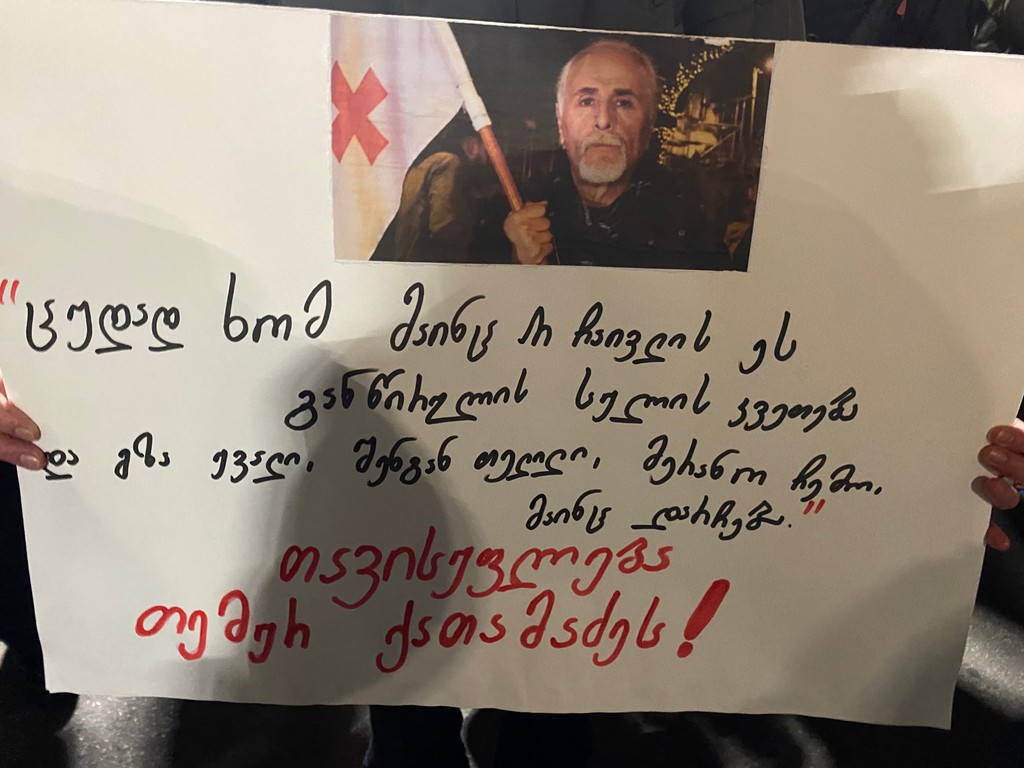 "ცუდად ხომ მაინც არ ჩაივლის ეს
განწირულის სულის კვეთება
და გზა უვალი, შენგან თელილი, მერანო ჩემო,
მაინც დარჩება."
თავისუფლება
თემურ ქათამაძეს!